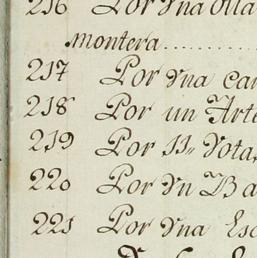 216 Por Vna Olla
montera..........
217 Por Vna Can
218 Por un Arte
219 Por 11 Vota
220 Por Vn Ba
221 Por Vna Esc